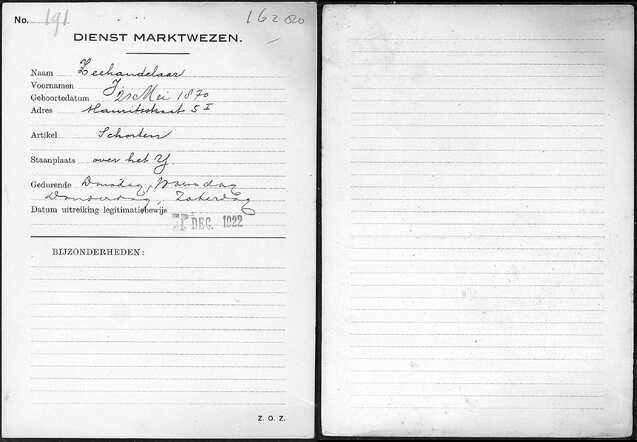 No. 191 162020
DIENST MARKTWEZEN.
Naam Zeehandelaar
Voornamen J.
Geboortedatum 21 Mei 1870
Adres 5 I
Artikel Schorten
Staanplaats over het Y.
Gedurende Dinsdag, Woensdag
Donderdag, Zaterdag
Datum uitreiking legitimatiebewijs DEC. 1922
BIJZONDERHEDEN:
Z. O. Z.